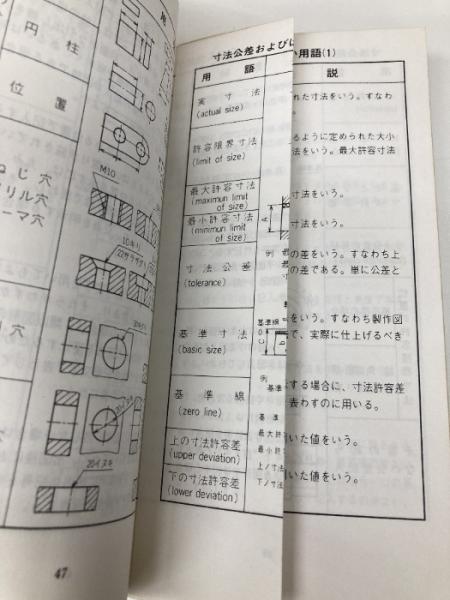 円柱
位置
ねじ穴
リル穴
ーマ穴
穴
M10
10キリ
20イヌキ
47
寸法公差および
い用語(1)
用語
説
実寸法
(actual size)
れた寸法をいう。すなわ
許容限界寸法
(limit of size)
るように定められた大小
法をいう。最大許容寸法
最大許容寸法
(maximun limit
of size)
寸法をいう。
最小許容寸法
(minimun limit
of size)
寸法をいう。
寸法公差
(tolerance)
例
の差をいう。すなわち上
の差である。単に公差と
基準寸法
(basic size)
基準線
をいう。すなわち製作図
で、実際に仕上げるべき
基準線
(zero line)
例
基準
する場合に、寸法許容差
表わすのに用いる。
基準
上の寸法許容差
(upper deviation)
最大許
最小許
いた値をいう。
下の寸法許容差
(lower deviation)
上ノ寸法
下ノ寸法
いた値をいう。